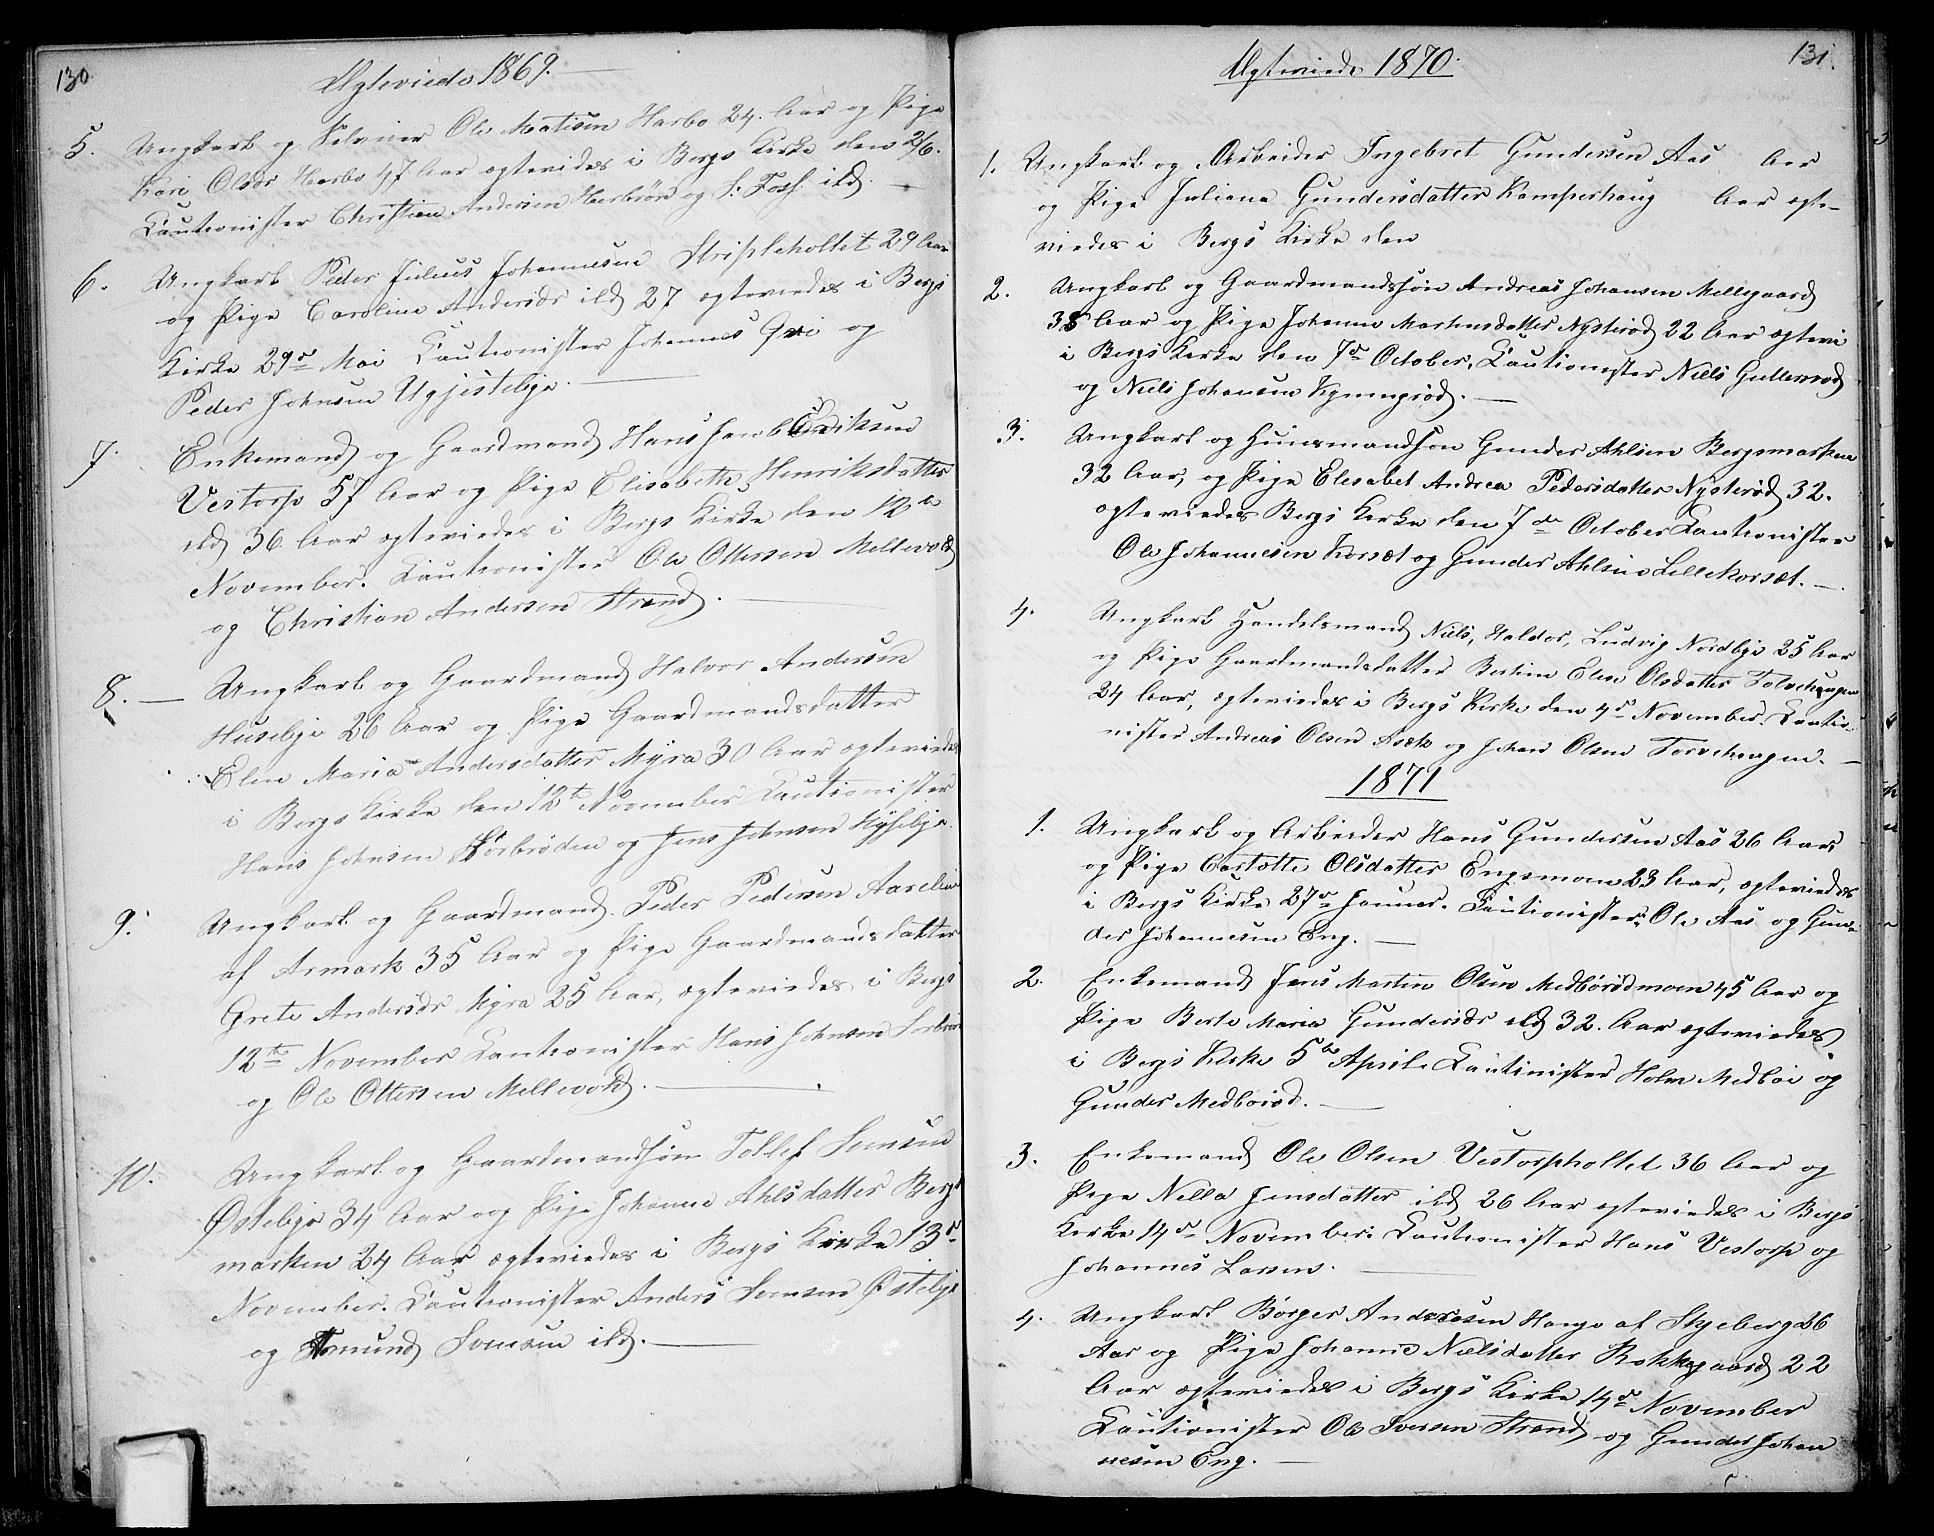 130
Ægteviede 1869.
5. Ungkarl og Selveier Ole Matisen Harbo 24. Aar og Pige
Kari Olsdr Haarbo 47 Aar ægtevides i Bergs Kirke den 2/6.
Cautionister Christian Andersen Herbrön og S. Foss ibd.
6. Ungkarl Peder Julius Johannesen Stripleholtet 29 Aar
og Pige Caroline Andersdr ibd 27 ægteviedes i Bergs
Kirke 29de Mai Cautionister Johannes og
Peder Johnsen Ugjestebye.
7. Enkemand og Gaardmand Hans Jacob Eriksen
Vestorp 57 Aar og Pige Elisabeth Henriksdatter
ibd 36 Aar ægteviedes i Bergs Kirke den 12te
November. Cautionister Ole Ottersen Mellevold
og Christian Andersen Strand.
8. Ungkarl og Gaardmand Halvor Andersen
Husebye 26 Aar og Pige Gaardmandsdatter
Elen Maria Andersdatter Myra 30 Aar ægteviedes
i Bergs Kirke den 12te November Cautionister
Hans Johnsen Sorbröden og Jens Johnsen Hysebye.
9. Ungkarl og Gaardmand. Peder Pedersen Aarelien
af Aremark 35 Aar og Pige Gaardmandsdatter
Grete Andersdr Myra 25 Aar, ægteviedes i Bergs
12te November Cautionister Hans Johnsen Sorbrö
og Ole Ottersen Mellevold.
10. Ungkarl og Gaardmandsön Tollef Svensen
Östebye 34 Aar og Pige Johanne Ahlsdatter Bergs
marken 24 Aar ægteviedes i Bergs Kirke 13de
November. Cautionister Anders Svensen Östebye
og Amund Svensen ibd.
131.
Ægteviede 1870.
1. Ungkarl og Arbeider Ingebret Gundersen Aas Aar
og Pige Juliana Gundersdatter Kamperhaug Aar ægte-
viedes i Bergs Kirke den
2. Ungkarl og Gaardmandssön Andreas Johansen Mellegaard
38 Aar og Pige Johanne Martinsdatter Nysteröd 22 Aar ægtevi
i Bergs Kirke den 7de October, Cautionister Niels Gulleröd
og Niels Johansen Kynningröd.
3. Ungkarl og Huusmandsön Gunder Ahlsen Bergsmarken
32 Aar, og Pige Elesabet Andrea Pedersdatter Nysteröd 32.
ægteviedes Bergs Kirke den 7de October Cautionister
Ole Johannesen Korsæt og Gunder Ahlsen Lillekorsæt.
4. Ungkarl Handelsmand Niels, Haldor, Ludvig Nordbye 25 Aar
og Pige Gaardmandsdatter Bertine Elen Olsdatter Torvehougen
24 Aar, ægteviedes i Bergs Kirke den 4de November. Cautio-
nister Andreas Olsen Isæk og Johan Olsen Torvehougen.
1871
1. Ungkarl og Arbeider Hans Gundersen Aas 26 Aar,
og Pige Carlotte Olsdatter Engsmoen 23 Aar, ægteviedes
i Bergs Kirke 27de Januar. Cautionister: Ole Aas og Gun-
der Johannesen Eng.
2. Enkemand Jens Martin Olsen Medbörödmoen 45 Aar og
Pige Berte Maria Gundersdr ibd 32. Aar ægteviedes
i Bergs Kirke 5te April. Cautinister Holm Medböe og
Gunder Medböröd.
3. Enkemand Ole Olsen Vestorpholtet 36 Aar og
Pige Nella Jensdatter ibd 26 Aar ægteviedes i Bergs
Kirke 14de November. Cautionister Hans Vestorp og
Johannes Larsen.
4. Ungkarl Börger Andreasen Hauge af Skjeberg 26
Aar og Pige Johanne Nielsdatter Rokkegaard 22
Aar ægteviedes i Bergs Kirke 14de November
Cautionister Ole Iversen Strand og Gunder Johan
nesen Eng.